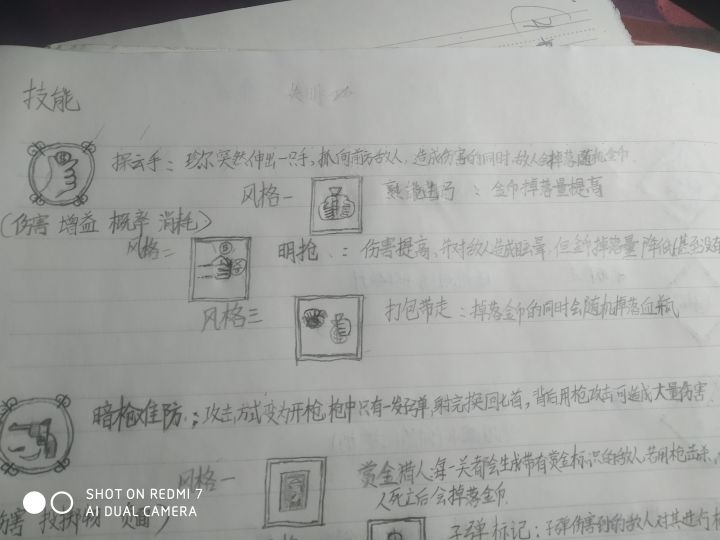 技能
探云手：珍尔突然伸出一只手，抓向前方敌人，造成伤害的同时敌人会掉落随机金币
风格一 熟能生巧：金币掉落量提高
（伤害 增益 概率 消耗）
风格二 明抢：伤害提高，并对敌人造成眩晕，但金币掉落量降低（甚至没有
风格三 打包带走：掉落金币的同时会随机掉落血瓶
暗枪难防：攻击方式变为开枪，枪中只有一发子弹，射完换回匕首，背后用枪攻击可造成大量伤害.
风格一 赏金猎人：每一关都会生成带有赏金标识的敌人若用枪击杀，
人死亡后会掉落金币
伤害 投掷物 负面）
子弹标记：子弹伤害到的敌人对其进行
SHOT ON REDMI 7
AI DUAL CAMERA